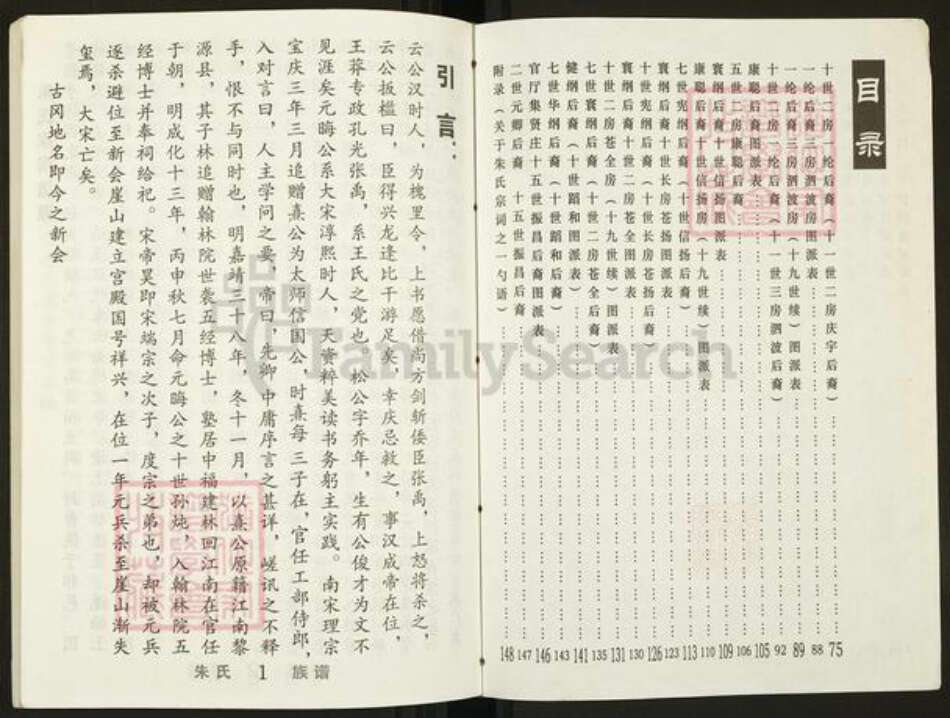 目录
十世二房一纶后裔(十一世二房庆宇后裔)……75
一纶后裔三房泗波房图派表……88
一纶后裔三房泗波房(十九世续)图派表……89
十世二房一纶后裔(十一世三房泗波后裔)……92
康聪后裔图派表……105
五世二房康聪后裔……106
寰纲后裔十世信扬图派表……109
康聪后裔十世信扬房(十九世续)图派表……110
七世宪纲后裔(十世信扬后裔)……113
寰纲后裔十世长房扬图派表……123
十世宪纲后裔(十世长房苍扬后裔)……126
寰纲后裔十世二房苍全图派表……130
十世二房苍全房(十九世续)图派表……131
七世寰纲后裔(十世二房苍全后裔)……135
健纲后裔(十世蹈和图派表)……141
七世华纲后裔(十世蹈和后裔)……143
官厅集贤庄十五世振昌后裔图派表……146
二世元卿后裔 十五世振昌后裔……147
附录(关于朱氏宗词之一勺语)……148
引言:
云公汉时人,为槐里令,上书愿借尚方剑斩倭臣张禹,上怒将杀之,
云公扳槛曰,臣得兴龙逢比干游足矣,幸庆忌救之,事汉成帝在位,
王莽专政孔光张禹,系王氏之党也。松公字乔年,生有公俊才为文不
见涯矣元晦公系大宋淳熙时人,天资粹美读书务躬主实践。南宋理宗
宝庆三年三月追赠熹公为太师信国公,时熹每三子在,官任工部侍郎,
入对言曰,人主学问之要,帝曰,先卿中庸序言之甚详,嗟讯之不释
手,恨不与同时也,明嘉靖三十八年,冬十一月,以熹公原籍江南黎
源县,其子林追赠翰林院世袭五经博士,塾居中福建林回江南在官任
于朝,明成化十三年,丙申秋七月命元晦公之十世孙炖,入翰林院五
经博士并奉祠给祀。宋帝昊即宋端宗之次子,度宗之弟也,却被元兵
逐杀避位至新会崖山建立宫殿国号祥兴,在位一年元兵杀至崖山渐失
玺焉,大宋亡矣。
古冈地名即今之新会
朱氏 1 族谱
FamilySearch